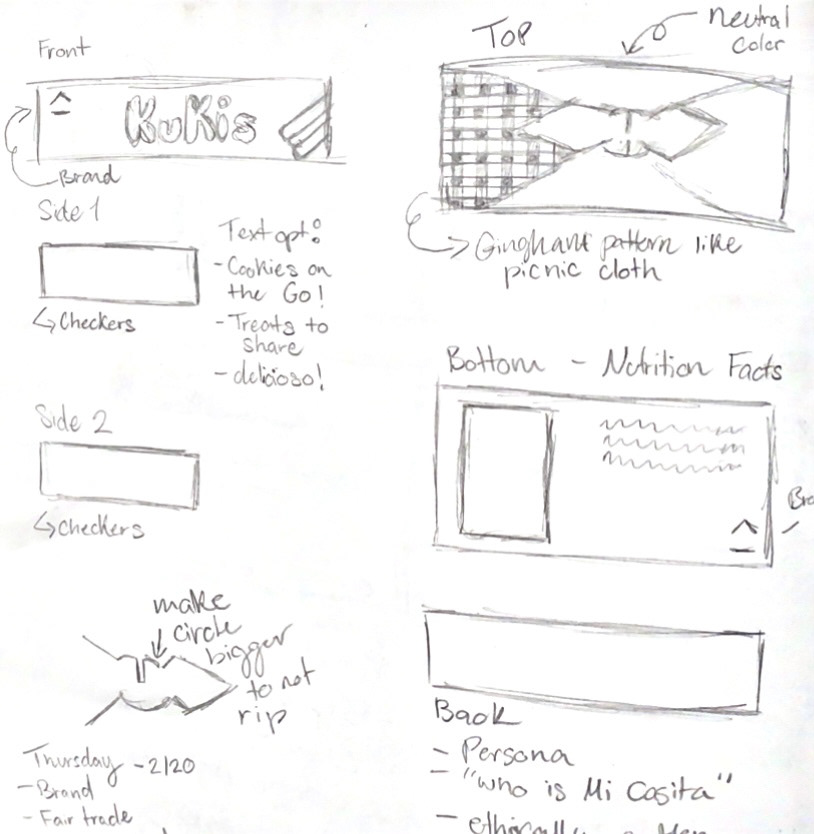 Front
KuKis
Brand
Side 1
Text opt:
- Cookies on
the Go!
- Treats to
share
- delicioso!
Checkers
Side 2
Checkers
make
circle
bigger
to not
rip
Thursday - 2/20
- Brand
- Fair trade
TOP
Neutral
Color
Gingham pattern like
picnic cloth
Bottom - Nutrition Facts
Back
- Persona
- "Who is Mi Casita"
- ethically